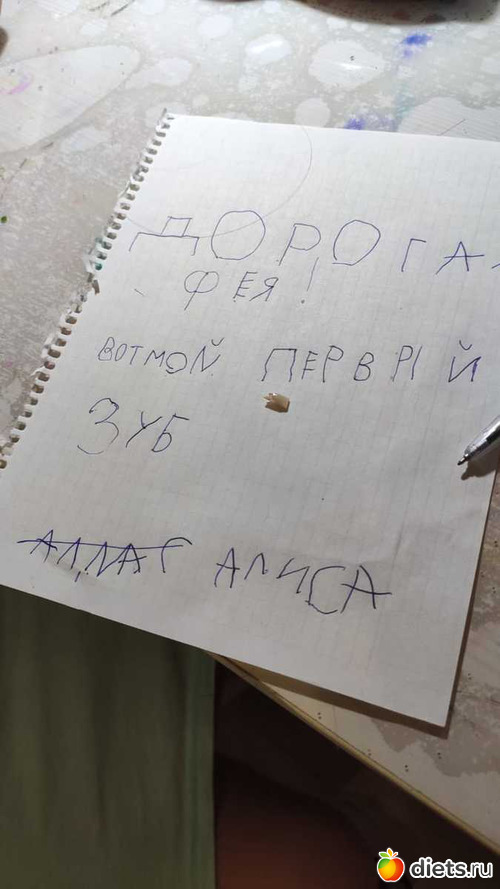 ДОРОГАЯ
ФЕЯ!
ВОТ МОЙ ПЕРВРІЙ
ЗУБ
АЛИСА
diets.ru